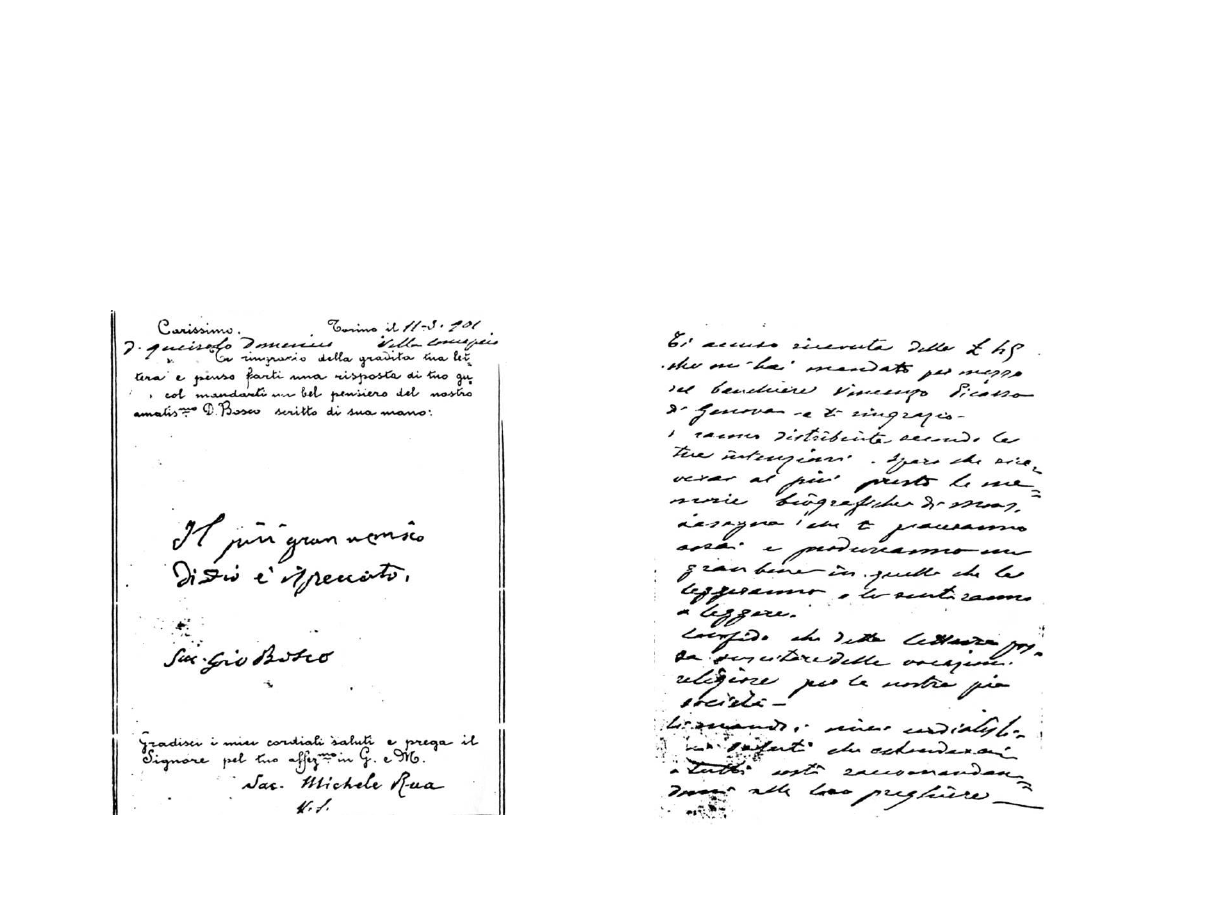 Carissimo. Torino il 11-3-901
D. Queirolo Domenico Villa
Ti ringrazio della gradita tua let-
tera e penso farti una risposta di tuo gu
col mandarti un bel pensiero del nostro
amatis.mo D. Bosco scritto di sua mano:
Il più gran nemico
di Dio è il peccato.
Sac. Gio Bosco
Gradisci i miei cordiali saluti e prega il
Signore pel tuo affez.mo in G. e M.
Sac. Michele Rua
Ti accuso ricevuta delle £
che mi hai mandato per mezzo
del banchiere Vincenzo Picasso
di Genova e ti ringrazio-
saranno distribuite secondo le
tue intenzioni. Spero che rice-
verai al più presto le me-
morie biografiche di Mons.
Lasagna che ti piaceranno
assai e produrranno un
gran bene in quelli che le
leggeranno o le sentiranno
a leggere.
Confido che detta lettura pos-
sa suscitare delle vocazioni
religiose per la nostra pia
società-
Ti mando i miei cordialissi-
mi saluti che estenderai
a tutti costì raccomandan-
domi alle loro preghiere